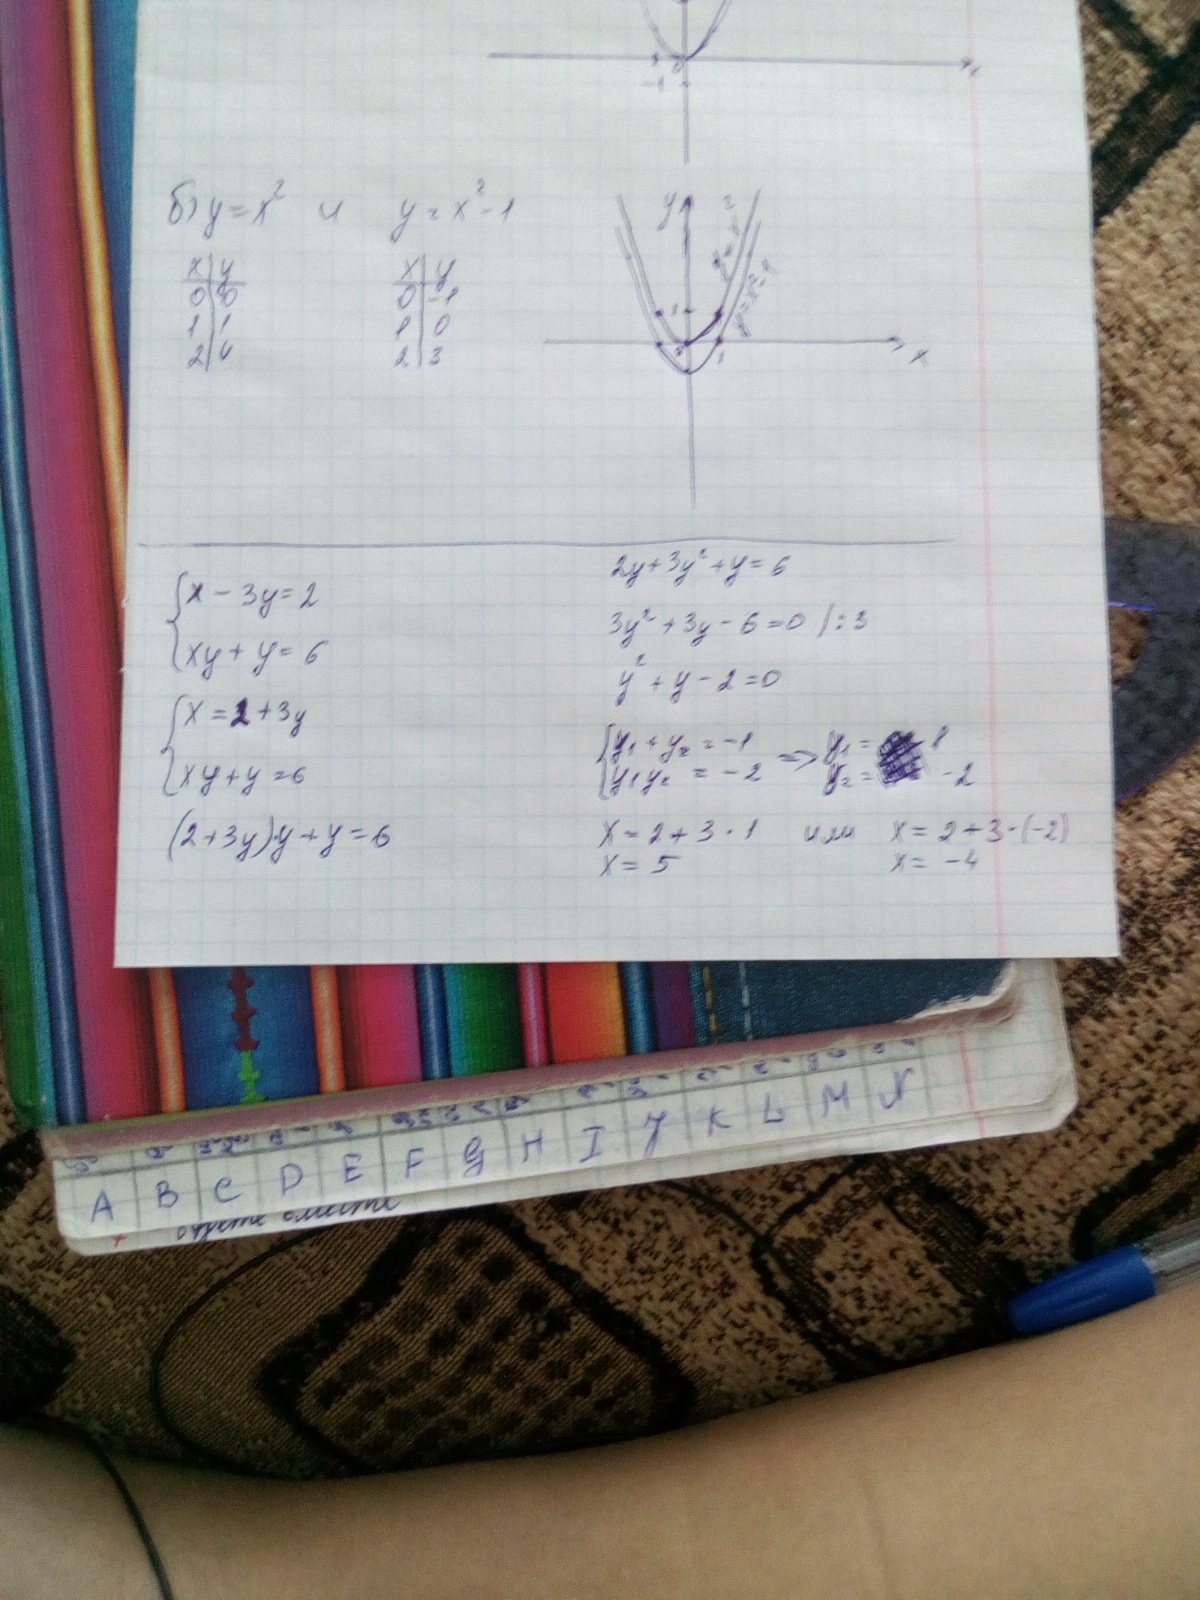 x
0
-1
б) y = x² и y = x² - 1
x y
0 0
1 1
2 4
x y
0 -1
1 0
2 3
y
1
0
1
x
y = x²
y = x² - 1
{ x - 3y = 2
xy + y = 6
{ x = 2 + 3y
xy + y = 6
(2 + 3y)y + y = 6
2y + 3y² + y = 6
3y² + 3y - 6 = 0 / : 3
y² + y - 2 = 0
{ y₁ + y₂ = -1 => y₁ = 1
y₁y₂ = -2 y₂ = -2
x = 2 + 3 · 1 или x = 2 + 3 · (-2)
x = 5 x = -4
A B C D E F G H I J K L M N
вместе